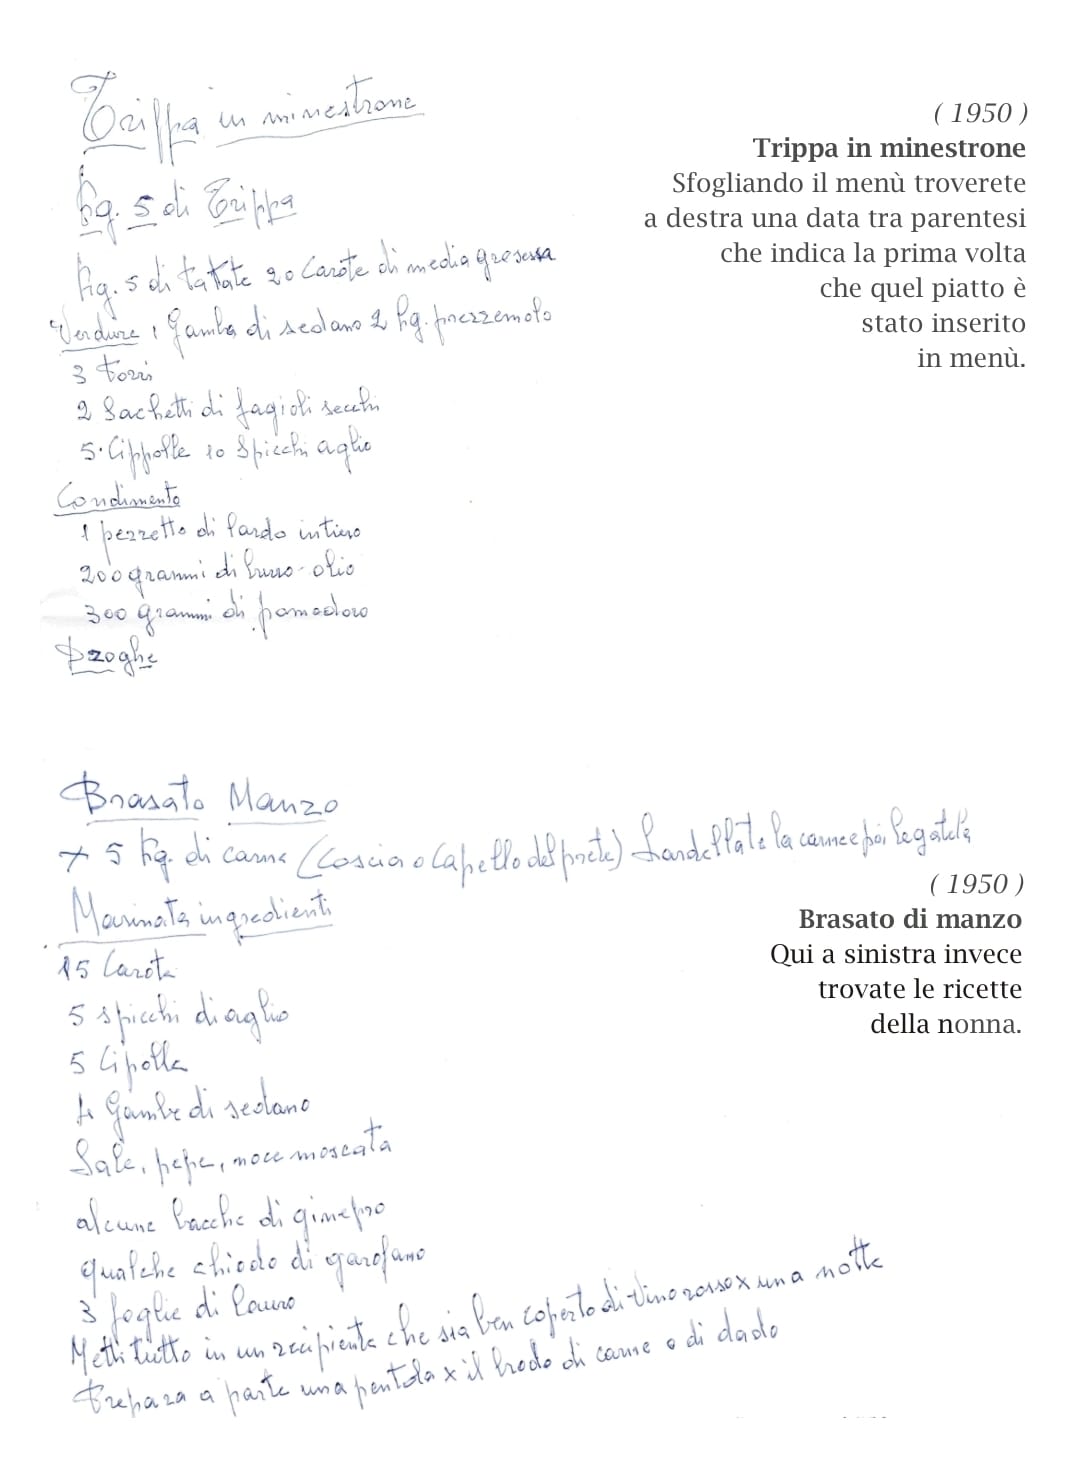 Trippa in minestrone
Kg. 5 di Trippa
Kg. 5 di patate 20 Carote di media grosessa
Verdure 1 Gamba di sedano 2 hg. prezzemolo
3 Porri
2 Sachetti di fagioli secchi
5. Cippolle 10 Spicchi aglio
Condimento
1 pezzetto di lardo intiero
200 grammi di burro - olio
300 grammi di pomodoro
Droghe
( 1950 )
Trippa in minestrone
Sfogliando il menù troverete
a destra una data tra parentesi
che indica la prima volta
che quel piatto è
stato inserito
in menù.
Brasato Manzo
x 5 Kg. di carne (Coscia o Capello del prete) Lardellate la carne e poi legatela
Marinata ingredienti
15 Carote
5 spicchi di aglio
5 Cipolle
4 Gambe di sedano
Sale, pepe, noce moscata
alcune bacche di ginepro
qualche chiodo di garofano
3 foglie di lauro
Metti tutto in un recipiente che sia ben coperto di vino rosso x una notte
Prepara a parte una pentola x il brodo di carne o di dado
( 1950 )
Brasato di manzo
Qui a sinistra invece
trovate le ricette
della nonna.